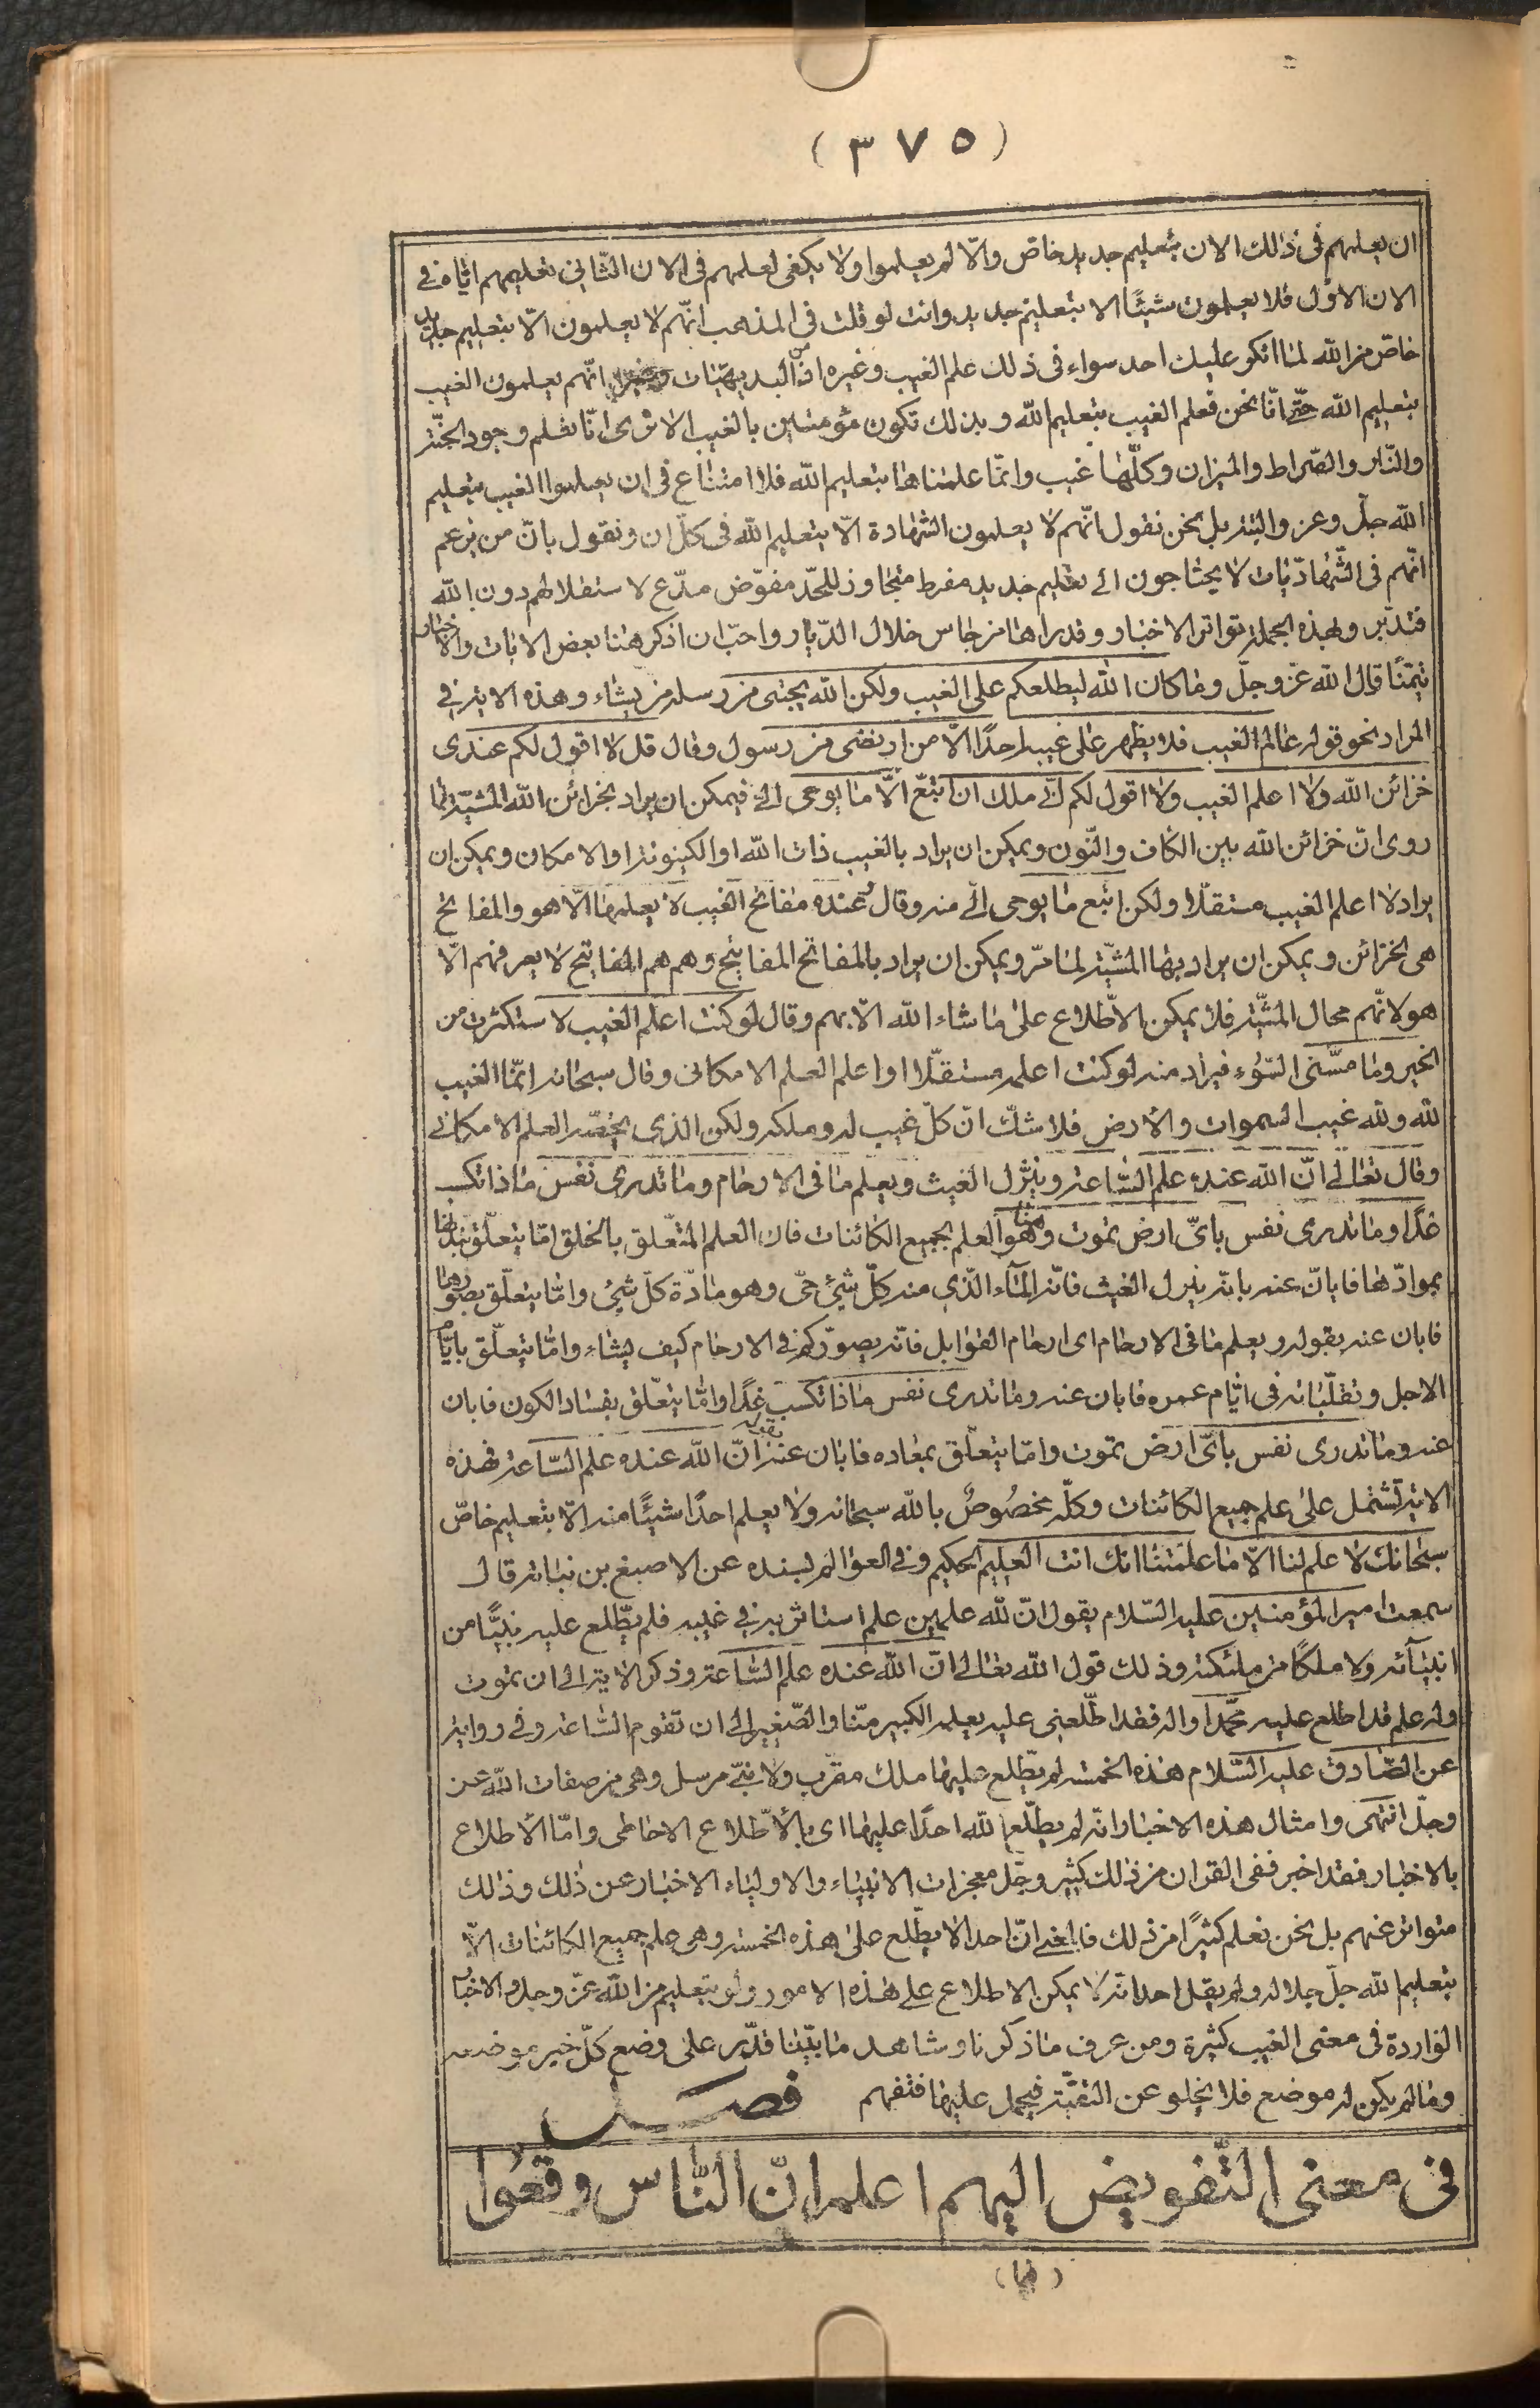 (٣٧٥)
ان يعلمهم فى ذلك الان بتعليم جديد خاص والّا لم يعلموا ولا يكفى لعلمهم فى الان الثانى تعليمهم ايّاه فى
الان الاوّل فلا يعلمون شيئًا الا بتعليم جديد وانت لو قلت فى المذهب انّهم لا يعلمون الّا بتعليم جديد
خاصّ من الله لما انكر عليك احد سواء فى ذلك علم الغيب وغيره اذ من البديهيّات انّهم يعلمون الغيب
بتعليم الله حتّى انّا نحن نعلم الغيب بتعليم الله وبذلك نكون مؤمنين بالغيب الا ترى انّا نعلم وجود الجنّة
والنّار والصّراط والميزان وكلّها غيب وانّما علمناها بتعليم الله فلا امتناع فى ان يعلموا الغيب بتعليم
الله جلّ وعز والبتّة بل نحن نقول انّهم لا يعلمون الشّهادة الّا بتعليم الله فى كلّ ان ونقول بانّ من يزعم
انّهم فى الشّهاديّات لا يحتاجون الى تعليم جديد مفرط متجاوز للحدّ مفوّض مدّع لاستقلالهم دون الله
فتدبّر وبهذه الجملة تواتر الاخبار وقد راها من جاس خلال الدّيار واحبّ ان اذكر هنا بعض الايات والاخبار
تيمّنًا قال الله عزّ وجلّ وما كان الله ليطلعكم على الغيب ولكن الله يجتبى من رسله من يشاء وهذه الاية فى
المراد نحو قوله عالم الغيب فلا يظهر على غيبه احدًا الّا من ارتضى من رسول وقال قل لا اقول لكم عندى
خزائن الله ولا اعلم الغيب ولا اقول لكم انّى ملك ان اتّبع الّا ما يوحى الىّ فيمكن ان يراد بخزائن الله المشيّة لما
روى انّ خزائن الله بين الكاف والنّون ويمكن ان يراد بالغيب ذات الله او الكينونة او الامكان ويمكن ان
يراد لا اعلم الغيب مستقلّا ولكن اتّبع ما يوحى الىّ منه وقال وعنده مفاتح الغيب لا يعلمها الّا هو والمفاتح
هى الخزائن ويمكن ان يراد بها المشيّة لما مرّ ويمكن ان يراد بالمفاتح المفاتيح وهم هم المفاتيح لا يعرفهم الّا
هو لانّهم محال المشيّة فلا يمكن الاطّلاع على ما شاء الله الّا بهم وقال لو كنت اعلم الغيب لاستكثرت من
الخير وما مسّنى السّوء فيراد منه لو كنت اعلمه مستقلّا او اعلم العلم الامكانى وقال سبحانه انّما الغيب
لله ولله غيب السموات والارض فلا شكّ انّ كلّ غيب له وملكه ولكن الذى يخصّه العلم الامكانى
وقال تعالى انّ الله عنده علم السّاعة وينزّل الغيث ويعلم ما فى الارحام وما تدرى نفس ماذا تكسب
غدًا وما تدرى نفس باىّ ارض تموت وهو العلم بجميع الكائنات فان العلم المتعلّق بالخلق امّا يتعلّق
بموادّها فابان عنه بانّه ينزل الغيث فانّه المآء الّذى منه كلّ شىء حىّ وهو مادّة كلّ شىء وامّا يتعلّق بصورها
فابان عنه بقوله ويعلم ما فى الارحام اى ارحام القوابل فانّه يصوّركم فى الارحام كيف يشاء وامّا يتعلّق بايّام
الاجل وتقلّباته فى ايّام عمره فابان عنه وما تدرى نفس ماذا تكسب غدًا وامّا يتعلّق بفساد الكون فابان
عنه وما تدرى نفس باىّ ارض تموت وامّا يتعلّق بمعاده فابان عنه بقوله انّ الله عنده علم السّاعة فهذه
الاية تشتمل على علم جميع الكائنات وكلّه مخصُوصٌ بالله سبحانه ولا يعلم احدًا شيئًا منه الّا بتعليم خاصّ
سبحانك لا علم لنا الّا ما علمتنا انك انت العليم الحكيم وفى العوالم بسنده عن الاصبغ بن نباته قال
سمعت امير المؤمنين عليه السّلام يقول انّ لله علمين علم استاثر به فى غيبه فلم يطّلع عليه نبيًّا من
انبيآئه ولا ملكًا من ملئكته وذلك قول الله تعالى انّ الله عنده علم السّاعة وذكر الاية الى ان تموت
وله علم قد اطلع عليه محمّدا واله فقد اطّلعنى عليه يعلمه الكبير منّا والصّغير الى ان تقوم السّاعة وفى رواية
عن الصّادق عليه السّلام هذه الخمسة لم يطّلع عليها ملك مقرّب ولا نبىّ مرسل وهى من صفات الله عز
وجلّ انتهى وامثال هذه الاخبار انّه لم يطلّع الله احدًا عليها اى بالاطّلاع الاحاطى وامّا الاطلاع
بالاخبار فقد اخبر ففى القران من ذلك كثير وجّل معجزات الانبياء والاولياء الاخبار عن ذلك وذلك
متواتر عنهم بل نحن نعلم كثيرًا من ذلك فالمعنى انّ احدا لا يطّلع على هذه الخمسة وهى علم جميع الكائنات الّا
بتعليم الله جلّ جلاله ولم يقل احد انّه لا يمكن الاطلاع على هذه الامور ولو بتعليم من الله عزّ وجل والاخبار
الواردة فى معنى الغيب كثيرة ومن عرف ما ذكرنا وشاهد ما بيّنّا قدّر على وضع كلّ خبر موضعه
وما لم يكن له موضع فلا يخلو عن التقيّة فيحمل عليها فتفهم فصل
فى معنى التّفويض اليهم اعلم انّ النّاس وقعُوا